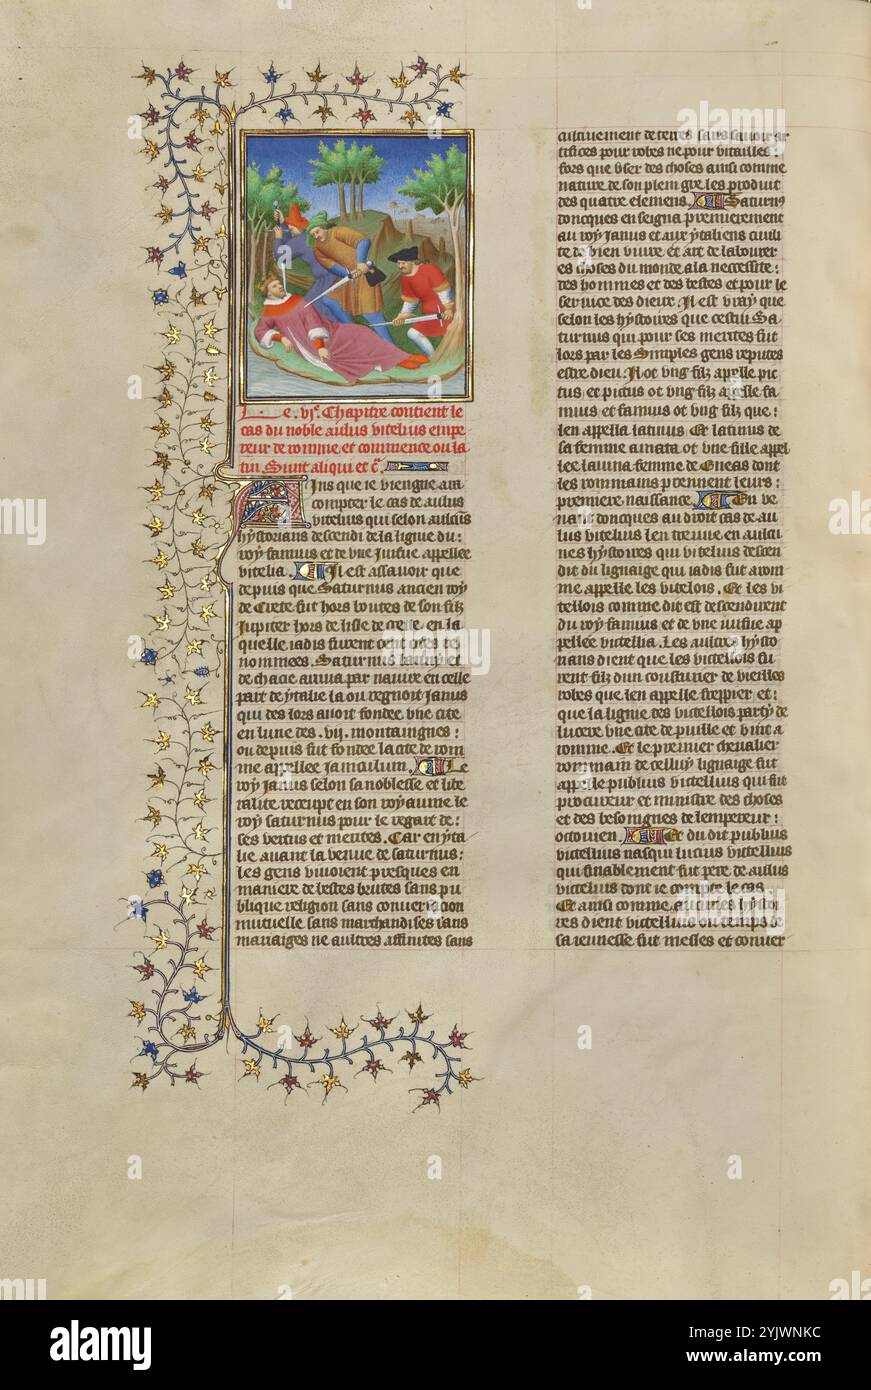 Le .vi.e Chapitre contient le
cas du noble aulus vitelius empe
reur de romme et commence ou la
tin Sunt aliqui et c̃.
Ains que ie viengne a ra
compter le cas de aulus
vitelius qui selon aulcũs
hystorians descendi de la ligne du:
roy famus et de vne iuifue appellee
vitelia. Il est assauoir que
depuis que Saturnus ancien roy
de Crete fut hors boutes de son filz
Jupiter hors de lisle de crete. en la
quelle iadis furent cent cites re
nommees. Saturnus banny et
de chacie arriua par nauire en celle
part de ytalie la ou regnoit Janus
qui des lors auoit fondee vne cite
en lune des .vij. montaignes:
ou depuis fut fondee la cite de rom
me appellee Janiculum. Le
roy ianus selon sa noblesse et libe
ralite receupt en son royaume le
roy saturnus pour le regart de:
ses vertus et merites. Car en yta
lie auant la venue de saturnus:
les gens viuoient presques en
maniere de bestes brutes sans pu
blique religion sans conuersacion
mutuelle sans marchandises sans
mariaiges ne aultres affinites sans
cultiuement de terres sans sauoir ar
tifices pour robes ne pour vitailles:
fors que vser des choses ainsi comme
nature de son plein gre les produit
des quatre elemens. Saturnus
doncques enseigna premierement
au roy Janus et aux ytaliens ciuili
te de bien viure et art de labourer
es choses du monde a la necessite:
des hommes et des bestes et pour le
seruice des dieux. Il est vray que
selon les hystoires que cestui Sa
turnus qui pour ses merites fut
lors par les simples gens reputes
estre dieu. Il ot vng filz apelle pic
tus et pictus ot vng filz apelle fa
mius et famius ot vng filz que:
len appella latinus Et latinus de
sa femme amata ot vne fille appel
lee lauina femme de Eneas dont
les rommains prennent leurs:
premiere naissance. En ve
nant doncques au droit cas de au
lus vitelius len treuue en aulcu
nes hystoires qui vitelius descen
dit du lignaige qui iadis fut a rom
me appelle les vitelois. Et les vi
tellois comme dit est descendirent
du roy famus et de vne iuifue ap
pellee victellia. Les aultres hysto
rians dient que les victellois fu
rent filz dun cousturier de vieilles
robes que len appelle freppier et:
que la lignie des victellois party de
lucere vne cite de puille et vint a
romme. Et le premier cheualier
rommain de celluy lignaige fut
appelle publius victellius qui fut
procureur et ministre des choses
et des besoingnes de lempereur:
octouien. Et du dit publius
victellius nasqui lucius victellius
qui finablement fut pere de aulus
victelius dont ie compte le cas
Et ainsi comme aucunes hystoi
res dient victellius ou temps de
sa ieunesse fut mesles et conuer
alamy
Image ID: 2YJWNKC
www.alamy.com